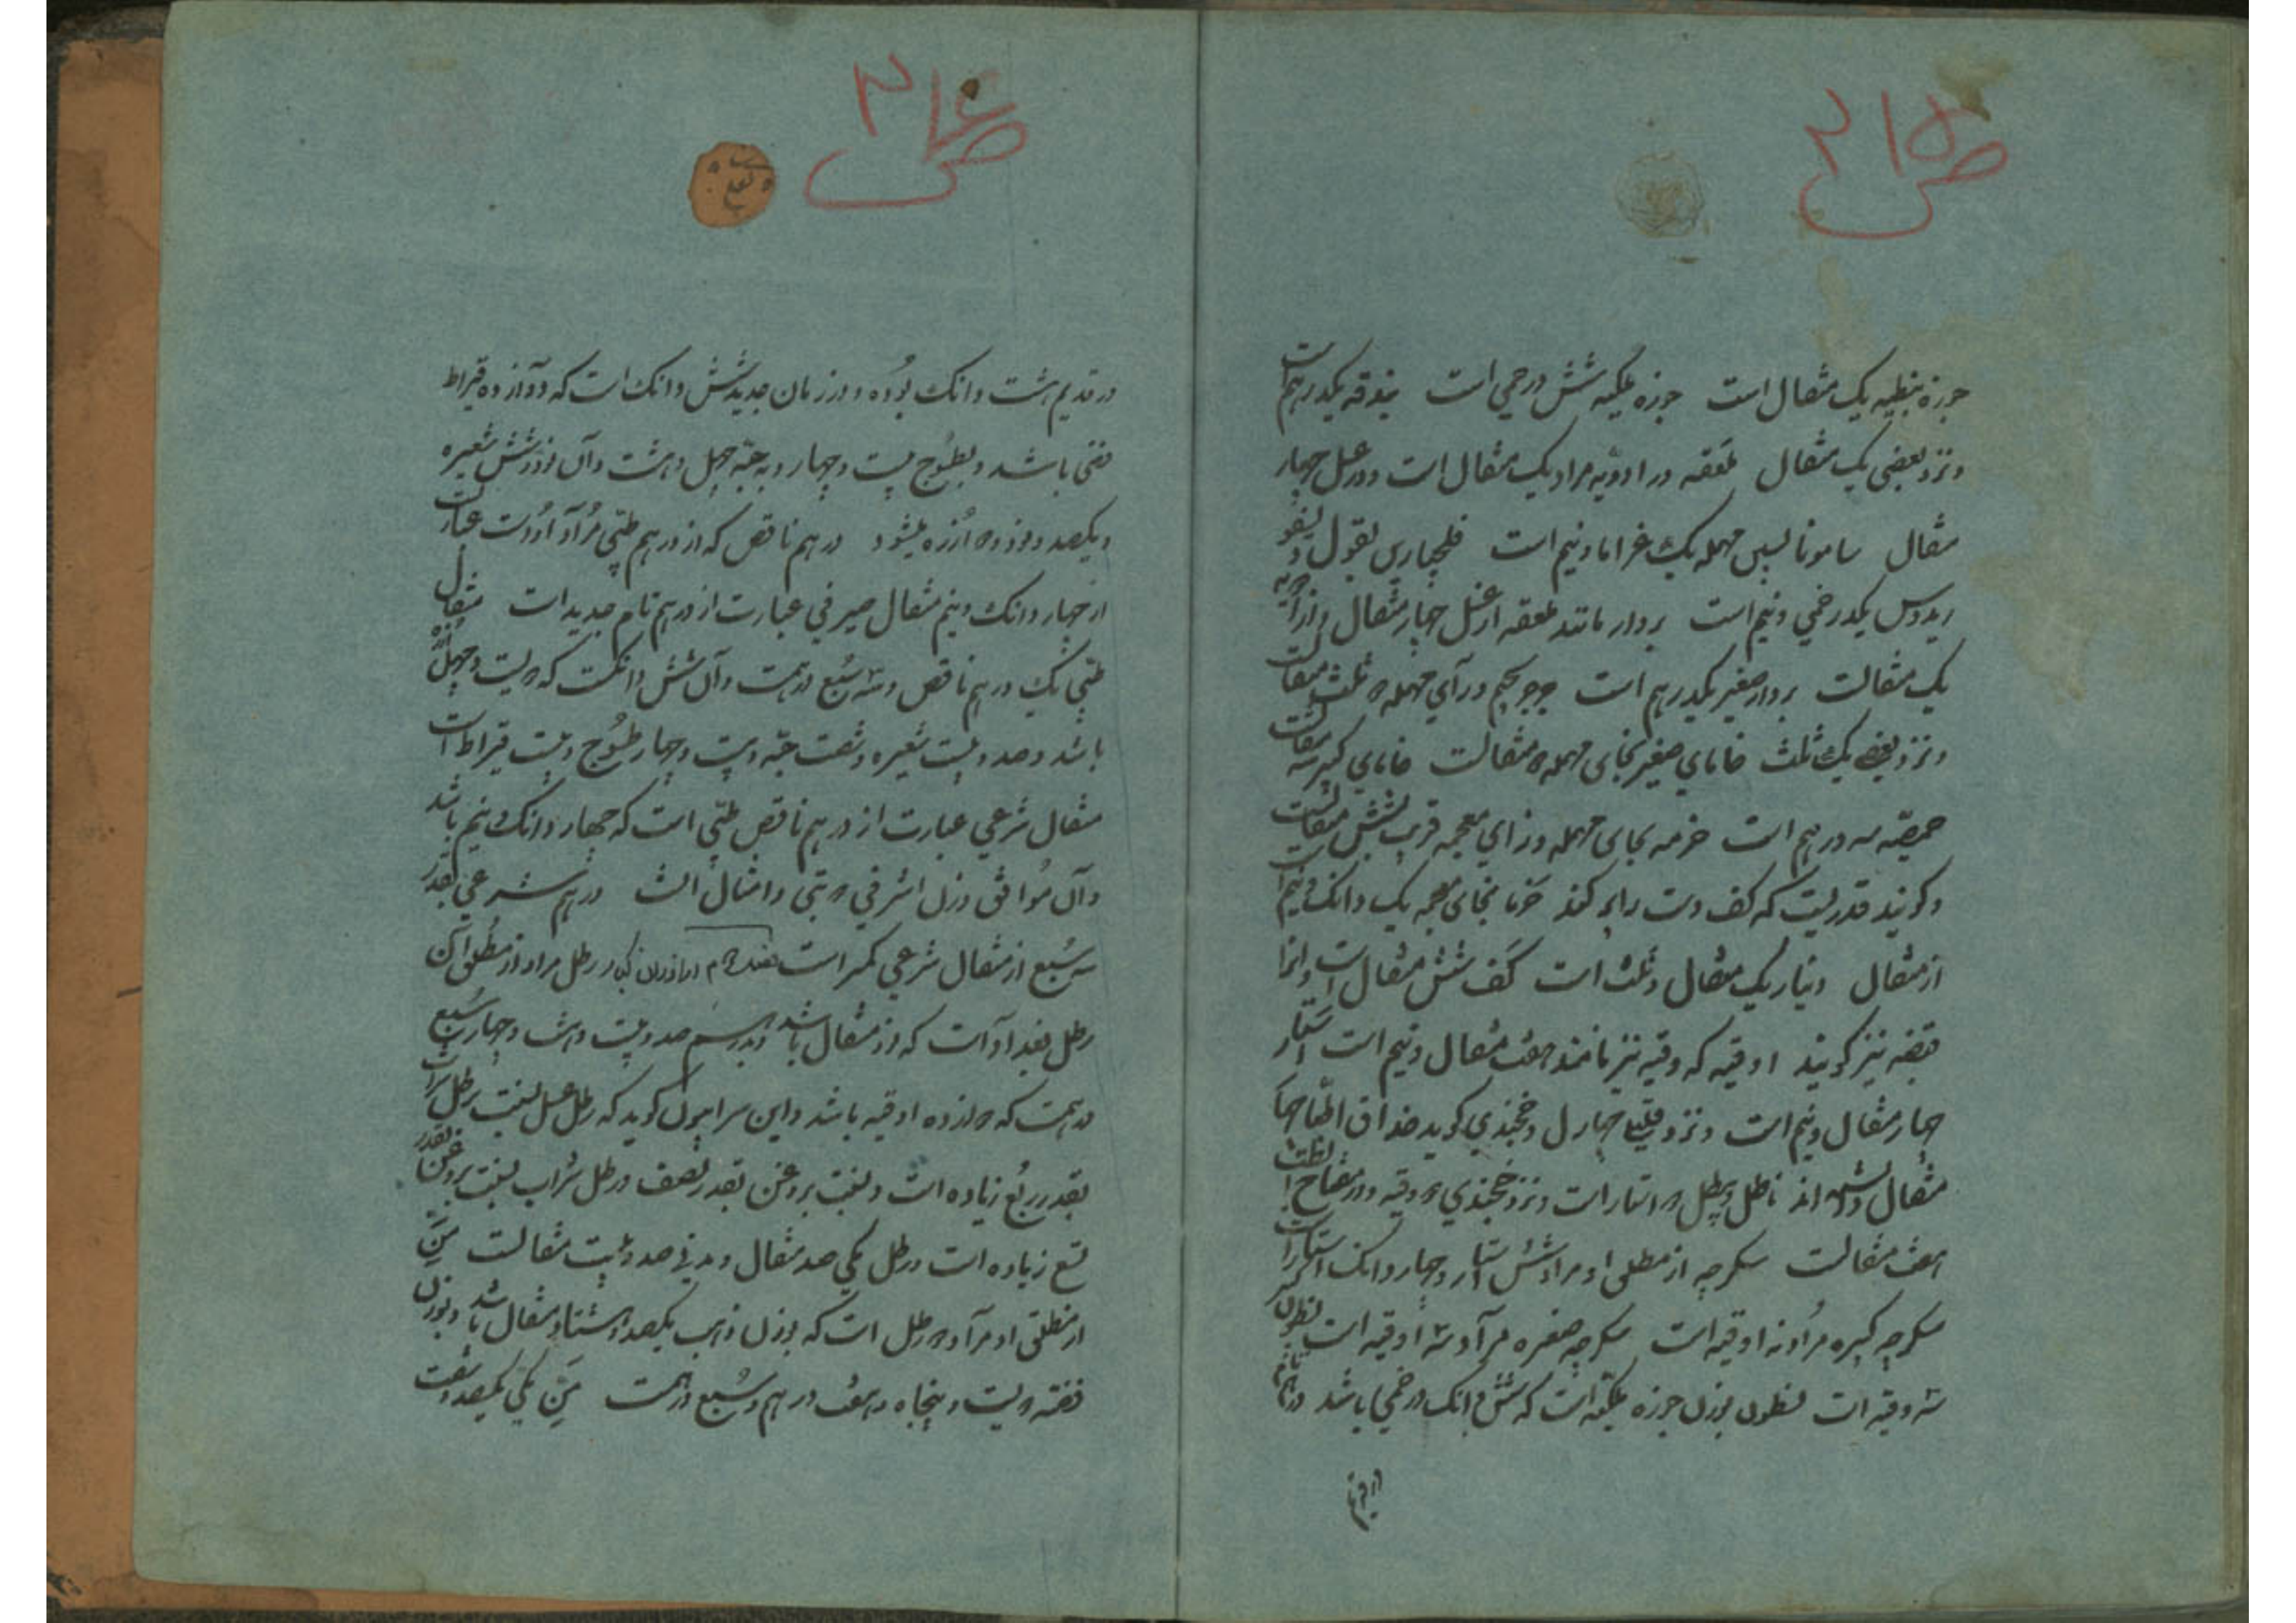 ص ۲۱۵
جوزه نبطیه یک مثقال است جوزه ملکیه شش درخمی است بندقه یکدرهم است
ونزد بعضی یک مثقال ملعقه در ادویه مراد یک مثقال است و در عسل چهار
مثقال سامونا بسین مهمله یک غراما و نیم است فلنجاری بقول
یکدرخمی و نیم است بردار مانند ملعقه از عسل چهار مثقال و از ادویه
یک مثقالست بردار صغیر یکدرهم است جرجر بجیم و رای مهمله ثلث مثقالست
ونزد بعضی یک ثلث خامای صغیر بخای مهمله مثقالست خامای کبیر سه مثقالست
حمصه سه درهم است خزمه بحای مهمله و زای معجمه قریب شش مثقالست
و گویند قدریست که کف دست را پر کند خرما بخای معجمه یک دانک و نیم است
از مثقال دینار یک مثقال و ثلث است کف شش مثقال است و انرا
قبضه نیز گویند اوقیه که وقیه نیز نامند هفت مثقال و نیم است استار
چهار مثقال و نیم است ونزد و خجندی گوید حذاق اطبا چهار
مثقال دانسته اند ناطل ۲ استار است ونزد خجندی ۲ وقیه و در مفتاح
هفت مثقالست سکرجه از مطلق او مراد شش استار و چهار دانک استار است
سکرجه کبیره مراد نه اوقیه است سکرجه صغیره مراد سه اوقیه است
سه وقیه است قنطون بوزن جوزه ملکیه است که شش دانک درخمی باشد درهم تام
در قدیم
ص ۲۱۶
در قدیم هشت دانک بوده و در زمان جدید شش دانک است که دوازده قیراط
فضی باشد و بطسوج بیست و چهار و به حبه چهل و هشت و آن نود و شش شعیره
و یکصد و نود و ۲ ارزه میشود درهم ناقص که از درهم طبی مراد اوست عبارت
از چهار دانک و نیم مثقال صیرفی عبارت از درهم تام جدید است مثقال
طبی یک درهم ناقص و سه سبع درهمست و آن شش دانکست که ۲ یست و چهل ارزه
باشد و صد و بیست شعیره و شصت حبه و بیست و چهار طسوج و بیست قیراط است
مثقال شرعی عبارت از درهم ناقص طبی است که چهار دانک و نیم باشد
و آن موافق وزن اشرفی ۲ بتی و امثال انست درهم شرعی بقدر
سه سبع از مثقال شرعی کمتر است رطل مراد از مطلق آن
رطل بغداد است که نود مثقال باشد و بدرهم صد و بیست و هشت و چهار سبع
درهمست که ۲ ازده اوقیه باشد و ابن سرابیون گوید که رطل عسل بنسبت رطل شراب
بقدر ربع زیاده است و بنسبت بروغن بقدر نصف و رطل شراب بنسبت بروغن بقدر
تسع زیاده است و رطل مکی صد مثقال و مدنی صد و بیست مثقالست من
از مطلق او مراد ۲ رطل است که بوزن ذهب یکصد و هشتاد مثقال باشد و بوزن
فضه ۲ یست و پنجاه و هفت درهم و سبع درهمست من مکی یکصد و شصت